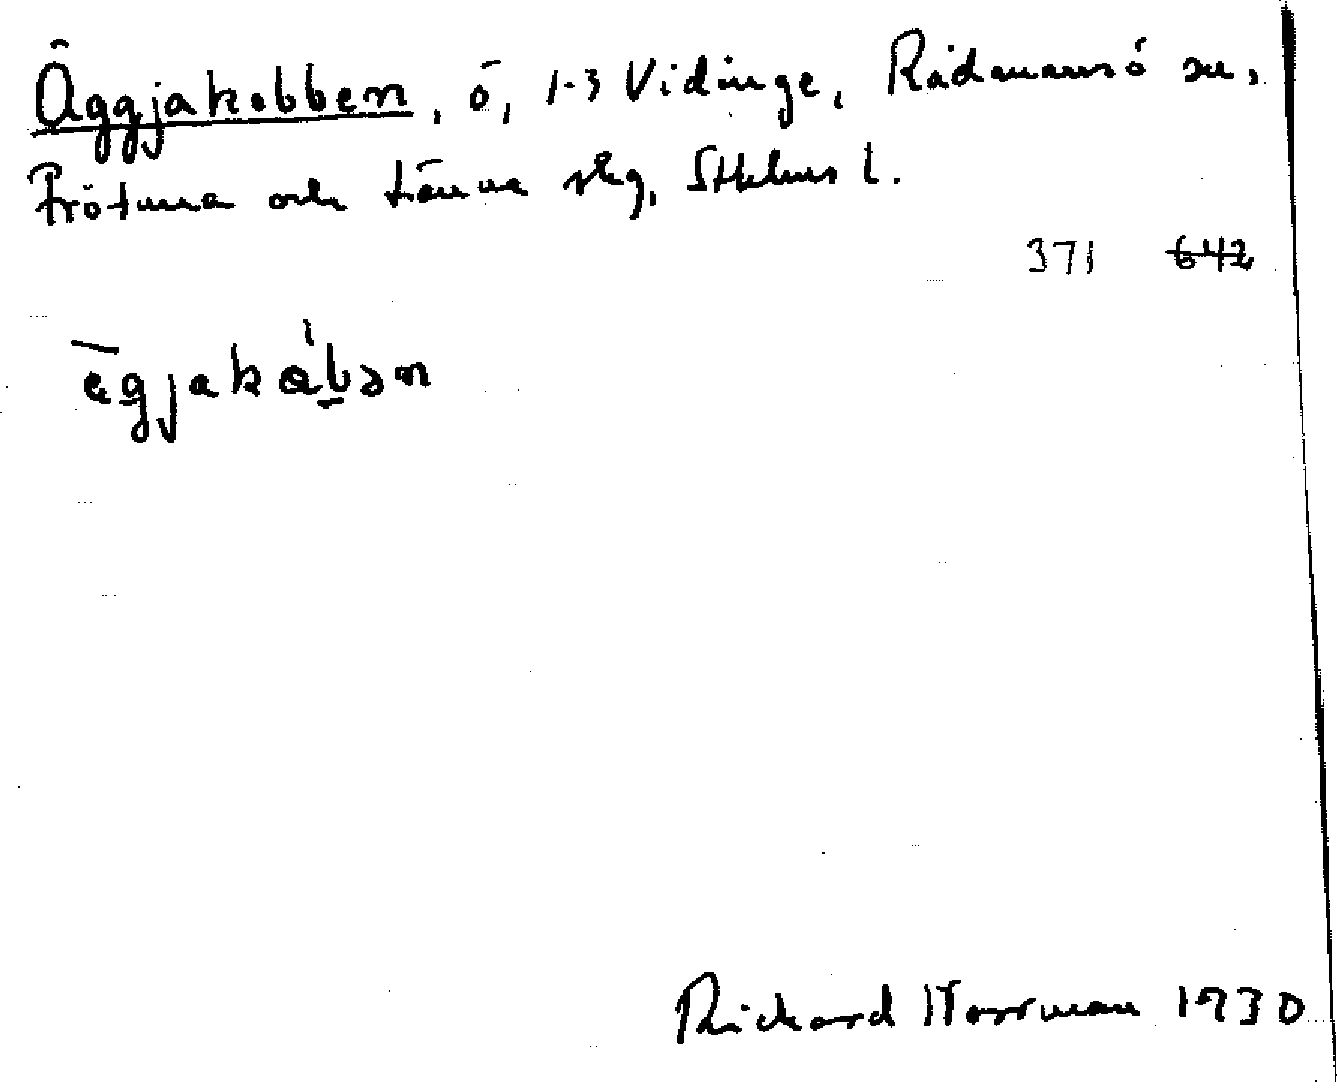 Äggjakobben, ö, 1-3 Vidinge, Rådmansö sn,
Frötuna och Länna skg, Sthlms l.
371 642
ęgjakåbən
Rickard Norrman 1930